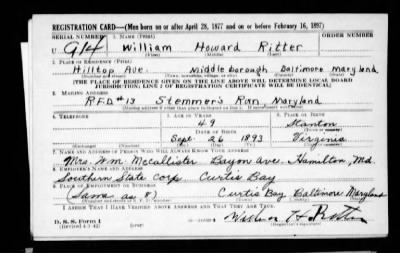 REGISTRATION CARD—(Men born on or after April 28, 1877 and on or before February 16, 1897)
SERIAL NUMBER 1. NAME (Print) ORDER NUMBER
U 914 William Howard Ritter
(First) (Middle) (Last)
2. PLACE OF RESIDENCE (Print)
Hilltop Ave. Middleborough Baltimore Maryland
(Number and street) (Town, township, village, or city) (County) (State)
[THE PLACE OF RESIDENCE GIVEN ON THE LINE ABOVE WILL DETERMINE LOCAL BOARD
JURISDICTION; LINE 2 OF REGISTRATION CERTIFICATE WILL BE IDENTICAL]
3. MAILING ADDRESS
RFD #13 Stemmer's Run, Maryland
[Mailing address if other than place indicated on line 2. If same insert word same]
4. TELEPHONE 5. AGE IN YEARS 6. PLACE OF BIRTH
49 Stanton
DATE OF BIRTH
Sept. 26 1893 Virginia
7. NAME AND ADDRESS OF PERSON WHO WILL ALWAYS KNOW YOUR ADDRESS
Mrs. Wm. McCallister Bayon Ave. Hamilton, Md.
8. EMPLOYER'S NAME AND ADDRESS
Southern State Corp. Curtis Bay
9. PLACE OF EMPLOYMENT OR BUSINESS
(Same as 8) Curtis Bay Baltimore Maryland
I AFFIRM THAT I HAVE VERIFIED ABOVE ANSWERS AND THAT THEY ARE TRUE.
D. S. S. Form 1
(Revised 4-1-42) (over)
William H. Ritter
(Registrant's signature)